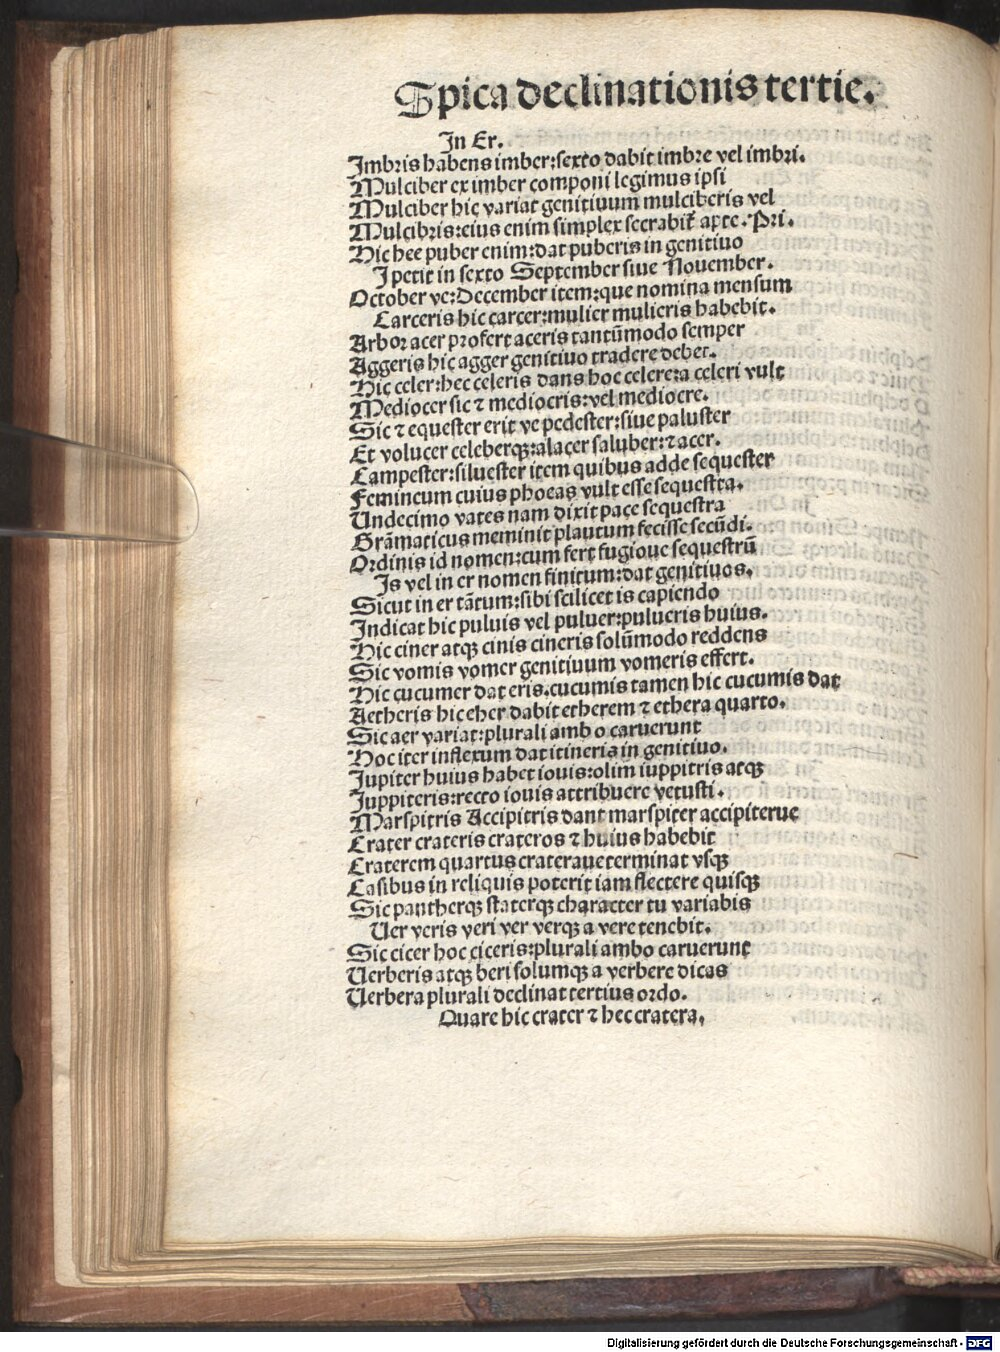 Spica declinationis tertie.
In Er.
Imbris habens imber: sexto dabit imbre vel imbri.
Mulciber ex imber componi legimus ipsi
Mulciber hic variat genitiuum mulciberis vel
Mulcibris: eius enim simplex seruabit᷑ apte. Pri.
Hic hec puber enim: dat puberis in genitiuo
I petit in sexto September siue Nouember.
October ve: December item: que nomina mensum
Carceris hic carcer: mulier mulieris habebit.
Arbor acer profert aceris tantūmodo semper
Aggeris hic agger genitiuo tradere debet.
Hic celer: hec celeris dans hoc celere: a celeri vult
Mediocer sic ⁊ mediocris: vel mediocre.
Sic ⁊ equester erit ve pedester: siue paluster
Et volucer celeberqꝫ: alacer saluber: ⁊ acer.
Campester: siluester item quibus adde sequester
Femineum cuius phocas vult esse sequestra.
Undecimo vates nam dixit pace sequestra
Grāmaticus meminit plautum fecisse secūdi.
Ordinis id nomen: cum fert fugioue sequestrū
Is vel in er nomen finitum: dat genitiuos.
Sicut in er tātum: sibi scilicet is capiendo
Indicat hic puluis vel puluer: pulueris huius.
Hic ciner atqꝫ cinis cineris solūmodo reddens
Sic vomis vomer genitiuum vomeris effert.
Hic cucumer dat eris. cucumis tamen hic cucumis dat
Aetheris hic eher dabit etherem ⁊ ethera quarto.
Sic aer variat: plurali ambo caruerunt
Hoc iter inflexum dat itineris in genitiuo.
Jupiter huius habet iouis: olim iuppitris atqꝫ
Juppiteris: recto iouis attribuere vetusti.
Marspitris Accipitris dant marspiter accipiterue
Crater crateris crateros ⁊ huius habebit
Craterem quartus crateraue terminat vsqꝫ
Casibus in reliquis poterit iam flectere quisqꝫ
Sic pantherqꝫ staterqꝫ character tu variabis
Uer veris veri ver verqꝫ a vere tenebit.
Sic cicer hoc ciceris: plurali ambo caruerunt
Uerberis atqꝫ beri solumqꝫ a verbere dicas
Uerbera plurali declinat tertius ordo.
Quare hic crater ⁊ hec cratera.
Digitalisierung gefördert durch die Deutsche Forschungsgemeinschaft - DFG